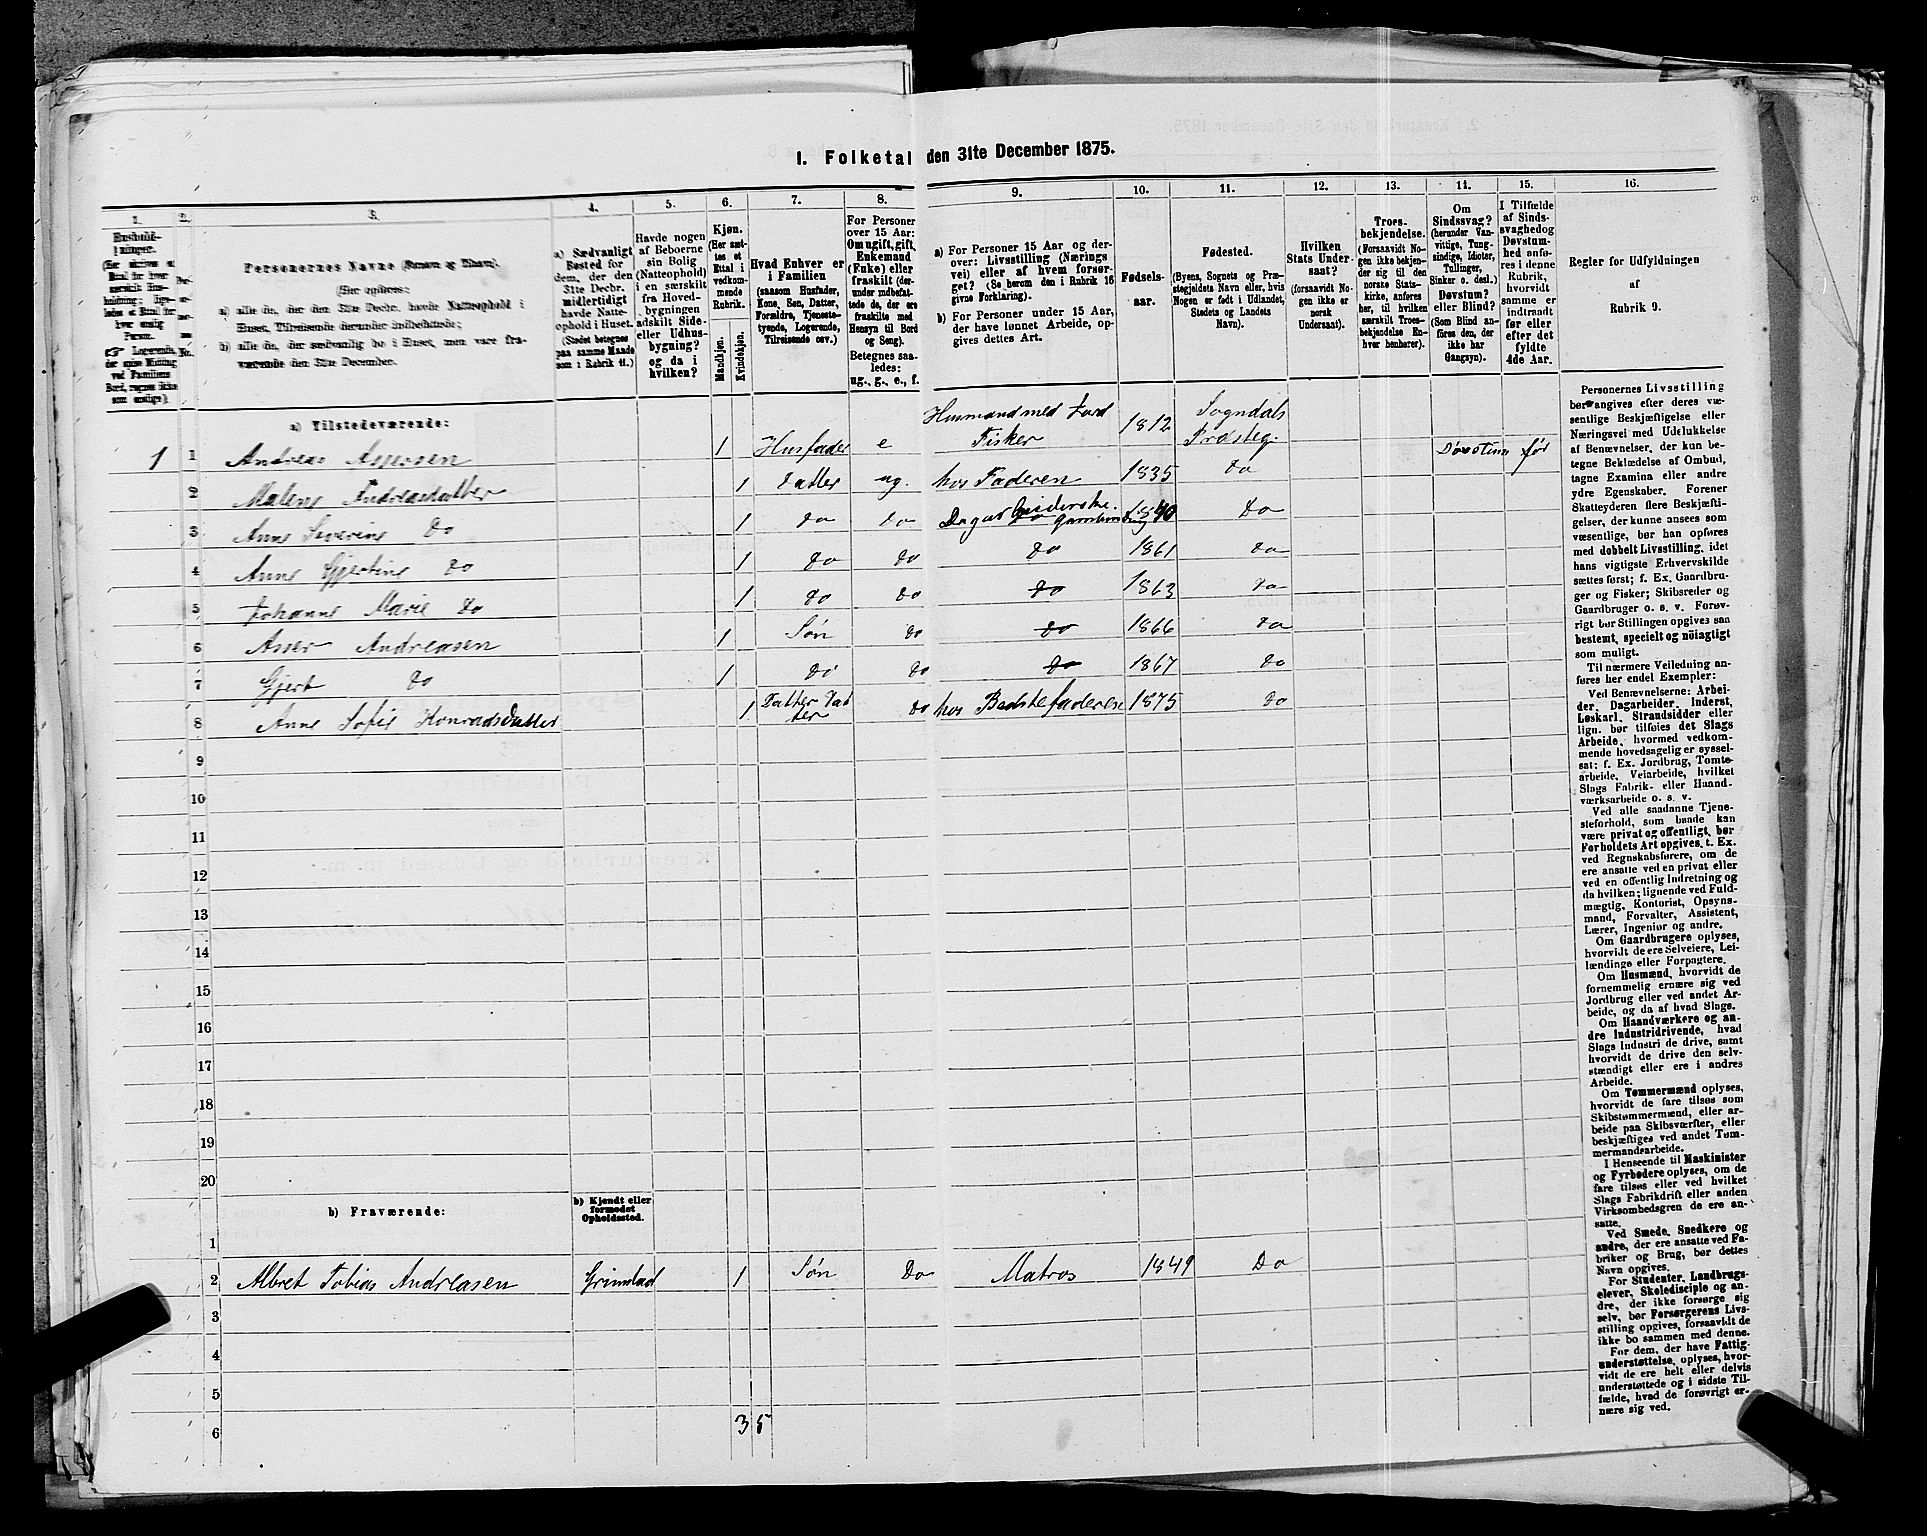 1. Folketal den 31te December 1875.
1. 2. 3. 4. 5. 6. 7. 8. 9. 10. 11. 12. 13. 14. 15. 16.
Personernes Navne (Fornavn og Tilnavn).
(Her opføres:
a) alle de, der den 31te Decbr. havde Natteophold i
Huset, Tilreisende derunder indbefattede;
b) alle de, der sædvanlig bo i Huset, men vare fra-
værende den 31te December.
a) Sædvanligt
Bosted for
dem, der den
31te Decbr.
midlertidigt
havde Natte-
ophold i Huset.
(Stedet betegnes
paa samme Maade
som i Rubrik 11.)
Havde nogen
af Beboerne
sin Bolig
(Natteophold)
i en særskilt
fra Hoved-
bygningen
adskilt Side-
eller Udhus-
bygning?
og da i
hvilken?
Kjøn.
(Her sæt-
tes et
Ettal i
vedkom-
mende
Rubrik.
Mandkjøn.
Kvindekjøn.
Hvad Enhver er
i Familien
(saasom Husfader,
Kone, Søn, Datter,
Forældre, Tjeneste-
tyende, Logerende,
Tilreisende osv.)
For Personer
over 15 Aar:
Om ugift, gift,
Enkemand
(Enke) eller
fraskilt (der-
under indbefat-
tede de, der ere
fraskilte med
Hensyn til Bord
og Seng).
Betegnes saa-
ledes:
ug., g., e., f.
a) For Personer 15 Aar og der-
over: Livsstilling (Nærings
vei) eller af hvem forsør-
get? (Se herom den i Rubrik 16
givne Forklaring).
b) For Personer under 15 Aar,
der have lønnet Arbeide, op-
gives dettes Art.
Fødsels-
aar.
Fødested.
(Byens, Sognets og Præ-
stegjeldets Navn eller, hvis
Nogen er født i Udlandet,
Stedets og Landets
Navn).
Hvilken
Stats Under-
saat?
(forsaavidt No-
gen ikke er
norsk
Undersaat).
Troes-
bekjendelse.
(Forsaavidt No-
gen ikke bekjen-
der sig til den
norske Stats-
kirke, anføres
her, til hvilken
særskilt Troes-
bekjendelse En-
hver henhører).
Om
Sindssvag?
(herunder Van-
vittige, Tung-
sindige, Idioter,
Tullinger,
Sinker o. desl.)
Døvstum?
eller Blind?
(Som Blind an-
føres den, der
ikke har
Gangsyn).
I Tilfælde
af Sinds-
svaghed og
Døvstum-
hed anfø-
res i denne
Rubrik,
hvorvidt
samme er
indtraadt
før eller
efter det
fyldte
4de Aar.
Regler for Udfyldningen
af
Rubrik 9.
a) Tilstedeværende:
1 1 Andreas Assersen 1 Husfader e Husmand med Jord Fisker 1812 Sogndals Præsteg. Døvstum før
2 Malene Andreasdatter 1 Datter ug. hos Faderen 1835 do
3 Anne Severine do 1 do do 1840 do
4 Anne Gjertine do 1 do do do 1861 do
5 Johanne Marie do 1 do do do 1863 do
6 Asser Andreasen 1 Søn do do 1866 do
7 Gjert do 1 do do do 1867 do
8 Anne Sofie Konradsdatter 1 Datter Datter do hos Bedstefaderen 1875 do
9
10
11
12
13
14
15
16
17
18
19
20
b) Fraværende:
b) Kjendt eller
formodet
Opholdssted.
1
2 Albret Tobias Andreasen Grimstad 1 Søn do Matros 1849 do
3
4
5
6 3 5
Personernes Livsstilling
bør angives efter deres væ-
sentlige Beskjæftigelse eller
Næringsvei med Udelukkelse
af Benævnelser, der kun be-
tegne Beklædelse af Ombud,
tagne Examina eller andre
ydre Egenskaber. Forener
Skatteyderen flere Beskjæfti-
gelser, der kunne ansees som
væsentlige, bør han opføres
med dobbelt Livsstilling, idet
hans vigtigste Erhvervskilde
sættes først; f. Ex. Gaardbru-
ger og Fisker; Skibsreder og
Gaardbruger o. s. v. Forøv-
rigt bør Stillingen opgives saa
bestemt, specielt og nöiagtigt
som muligt.
Til nærmere Veiledning an-
føres her endel Exempler:
Ved Benævnelserne: Arbei-
der, Dagarbeider, Inderst,
Løskarl, Strandsidder eller
lign. bør tilføies det Slags
Arbeide, hvormed vedkom-
mende hovedsagelig er syssel-
sat; f. Ex. Jordbrug, Tomte-
arbeide, Veiarbeide, hvilket
Slags Fabrik- eller Haand-
værksarbeide o. s. v.
Ved alle saadanne Tjene-
steforhold, som baade kan
være privat og offentligt, bør
Forholdets Art opgives, t. Ex.
ved Regnskabsførere, om de
ere ansatte ved en privat eller
ved en offentlig Indretning og
da hvilken; lignende ved Fuld-
mægtig, Kontorist, Opsyns-
mand, Forvalter, Assistent,
Lærer, Ingeniør og andre.
Om Gaardbrugere oplyses,
hvorvidt de ere Selveiere, Lei-
lændinge eller Forpagtere.
Om Husmænd, hvorvidt de
fornemmelig ernære sig ved
Jordbrug eller ved andet Ar-
beide, og da af hvad Slags.
Om Haandværkere og an-
dre Industridrivende, hvad
Slags Industri de drive, samt
hvorvidt de drive den selv-
stændigt eller ere i andres
Arbeide.
Om Tømmermænd oplyses,
hvorvidt de fare tilsøs som
Skibstømmermænd, eller ar-
beide paa Skibsværfter, eller
beskjæftiges ved andet Tøm-
mermandsarbeide.
I Henseende til Maskinister
og Fyrbødere oplyses, om de
fare tilsøs eller ved hvilket
Slags Fabrikdrift eller anden
Virksomhedsgren de ere an-
satte.
Ved Smede, Snedkere og
andre, der ere ansatte ved Fa-
briker og Brug, bør dettes
Navn opgives.
For Studenter, Landbrugs-
elever, Skoledisciple og an-
dre, der ikke forsørge sig
selv, bør Forsørgerens Livs-
stilling opgives, forsaavidt de
ikke bo sammen med denne.
For dem, der have Fattig-
understøttelse, oplyses, hvor-
vidt de ere helt eller delvis
understøttede og i sidste Til-
fælde, hvad de forøvrigt er-
nære sig ved.